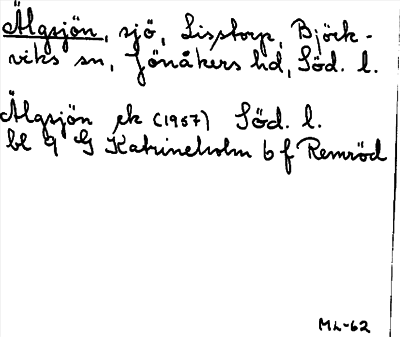 Älgsjön, sjö, Sisstorp, Björk-
viks sn, Jönåkers hd, Söd. l.
Älgsjön ek (1957) Söd. l.
bl 9 G Katrineholm 6 f Remröd
ML-62